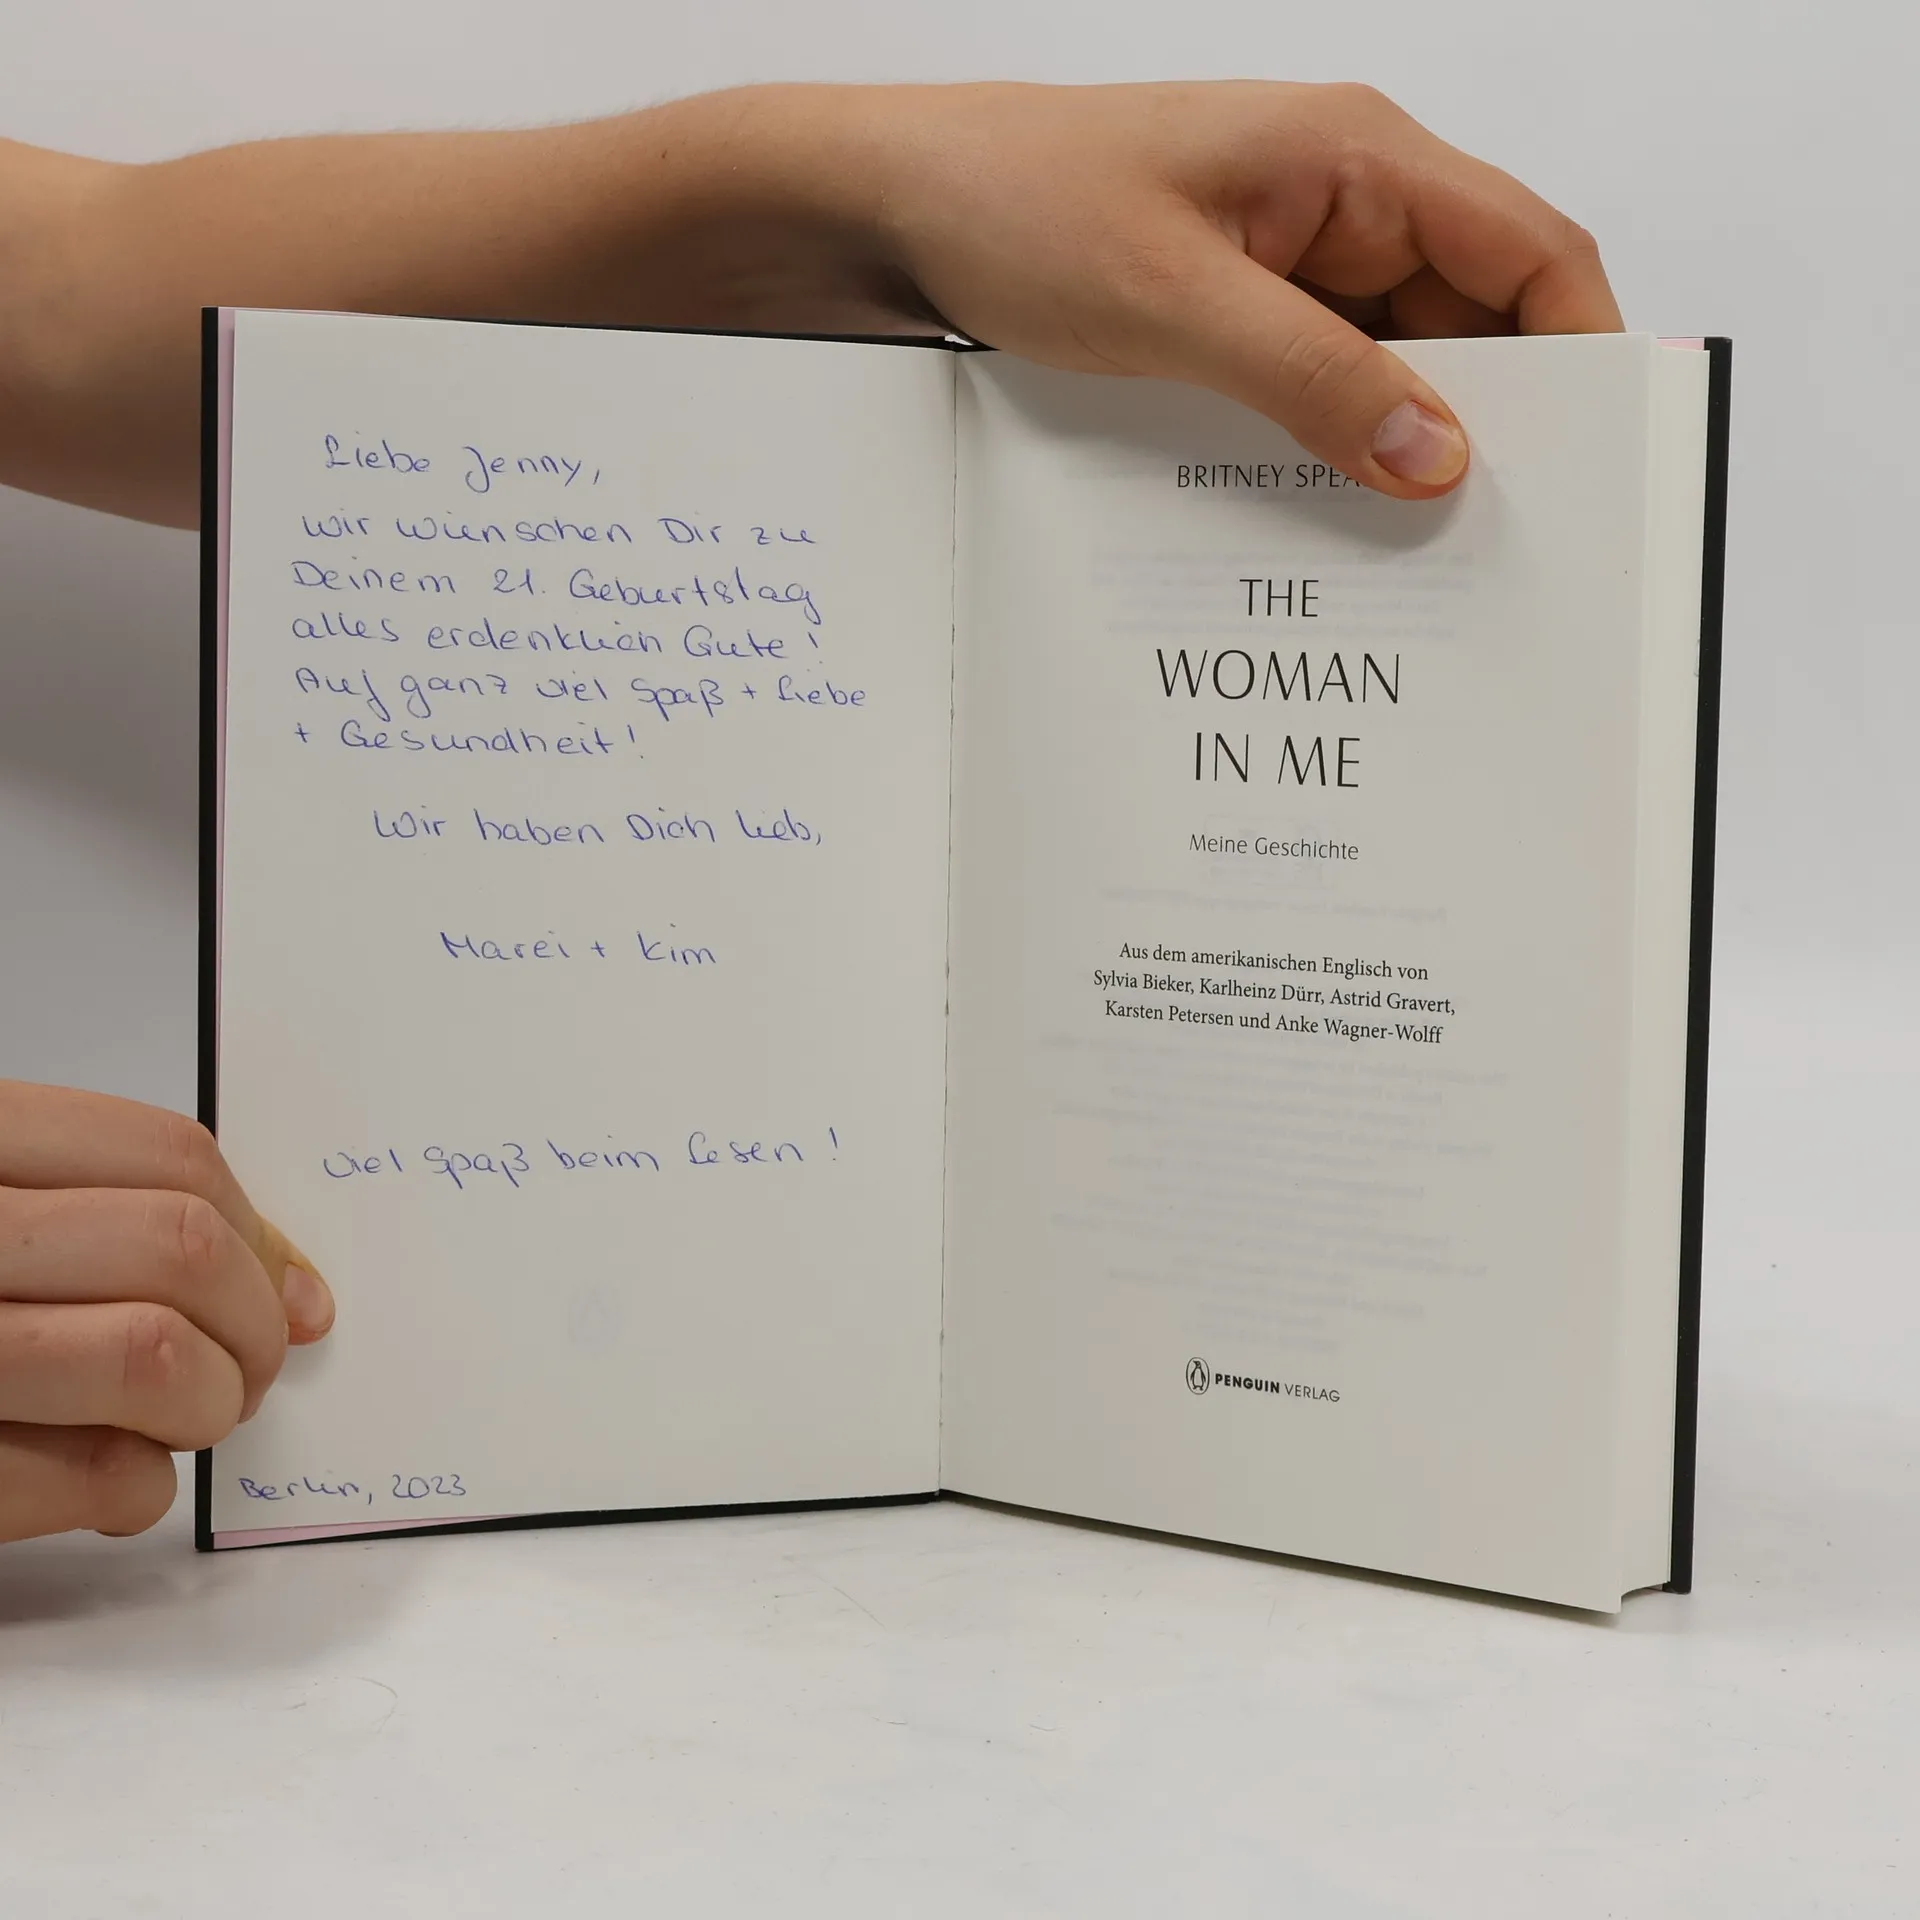 Liebe Jenny,
wir wünschen Dir zu
Deinem 21. Geburtstag
alles erdenklich Gute!
Auf ganz viel Spaß + Liebe
+ Gesundheit!
Wir haben Dich lieb,
Marei + Kim
Viel Spaß beim Lesen!
Berlin, 2023
BRITNEY SPEA
THE
WOMAN
IN ME
Meine Geschichte
Aus dem amerikanischen Englisch von
Sylvia Bieker, Karlheinz Dürr, Astrid Gravert,
Karsten Petersen und Anke Wagner-Wolff
PENGUIN VERLAG